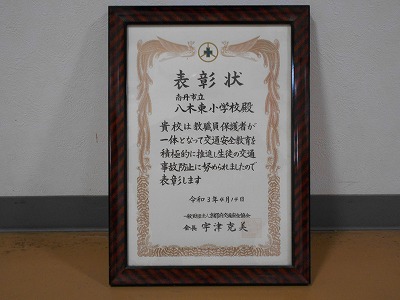 表彰状
南丹市立
八木東小学校殿
貴校は教職員保護者が
一体となって交通安全教育を
積極的に推進し生徒の交通
事故防止に努められましたので
表彰します
令和3年4月14日
一般財団法人京都府交通安全協会
会長 宇津克美